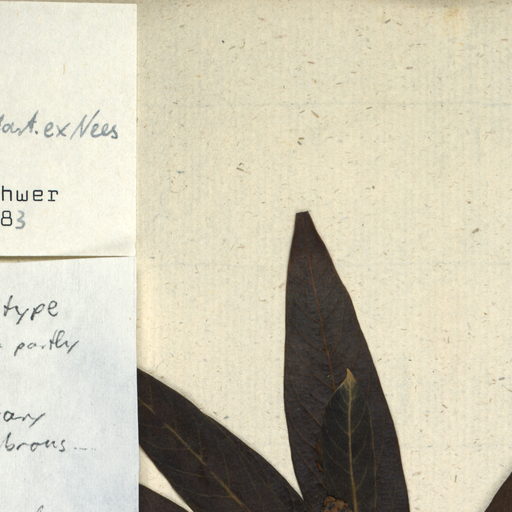 ex Nees
hwer
83
type
partly
ary
brous...